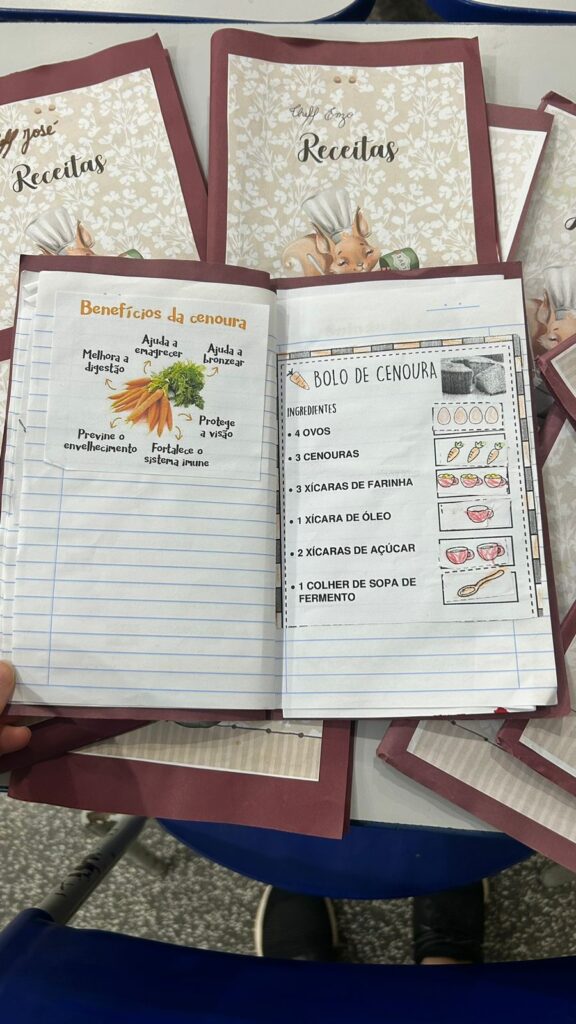 Cheff José
Receitas
Cheff Enzo
Receitas
Benefícios da cenoura
Ajuda a
emagrecer
Ajuda a
bronzear
Melhora a
digestão
Protege
a visão
Previne o
envelhecimento
Fortalece o
sistema imune
BOLO DE CENOURA
INGREDIENTES
• 4 OVOS
• 3 CENOURAS
• 3 XÍCARAS DE FARINHA
• 1 XÍCARA DE ÓLEO
• 2 XÍCARAS DE AÇÚCAR
• 1 COLHER DE SOPA DE
FERMENTO